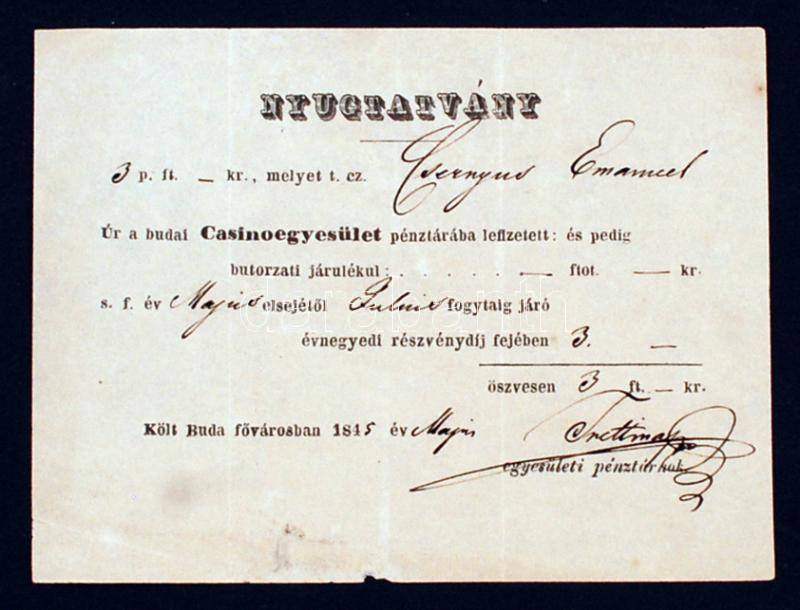 NYUGTATVÁNY
3 p. ft. — kr., melyet t. cz. Csernyus Emanuel
Úr a budai Casinoegyesület pénztárába lefizetett: és pedig
butorzati járulékul: . . . . . — ftot. — kr.
s. f. év Majus elsejétől Julius fogytaig járó
darabanth
évnegyedi részvénydíj fejében 3. —
öszvesen 3 ft. — kr.
Költ Buda fővárosban 1845 év Majus
egyesületi pénztárnok